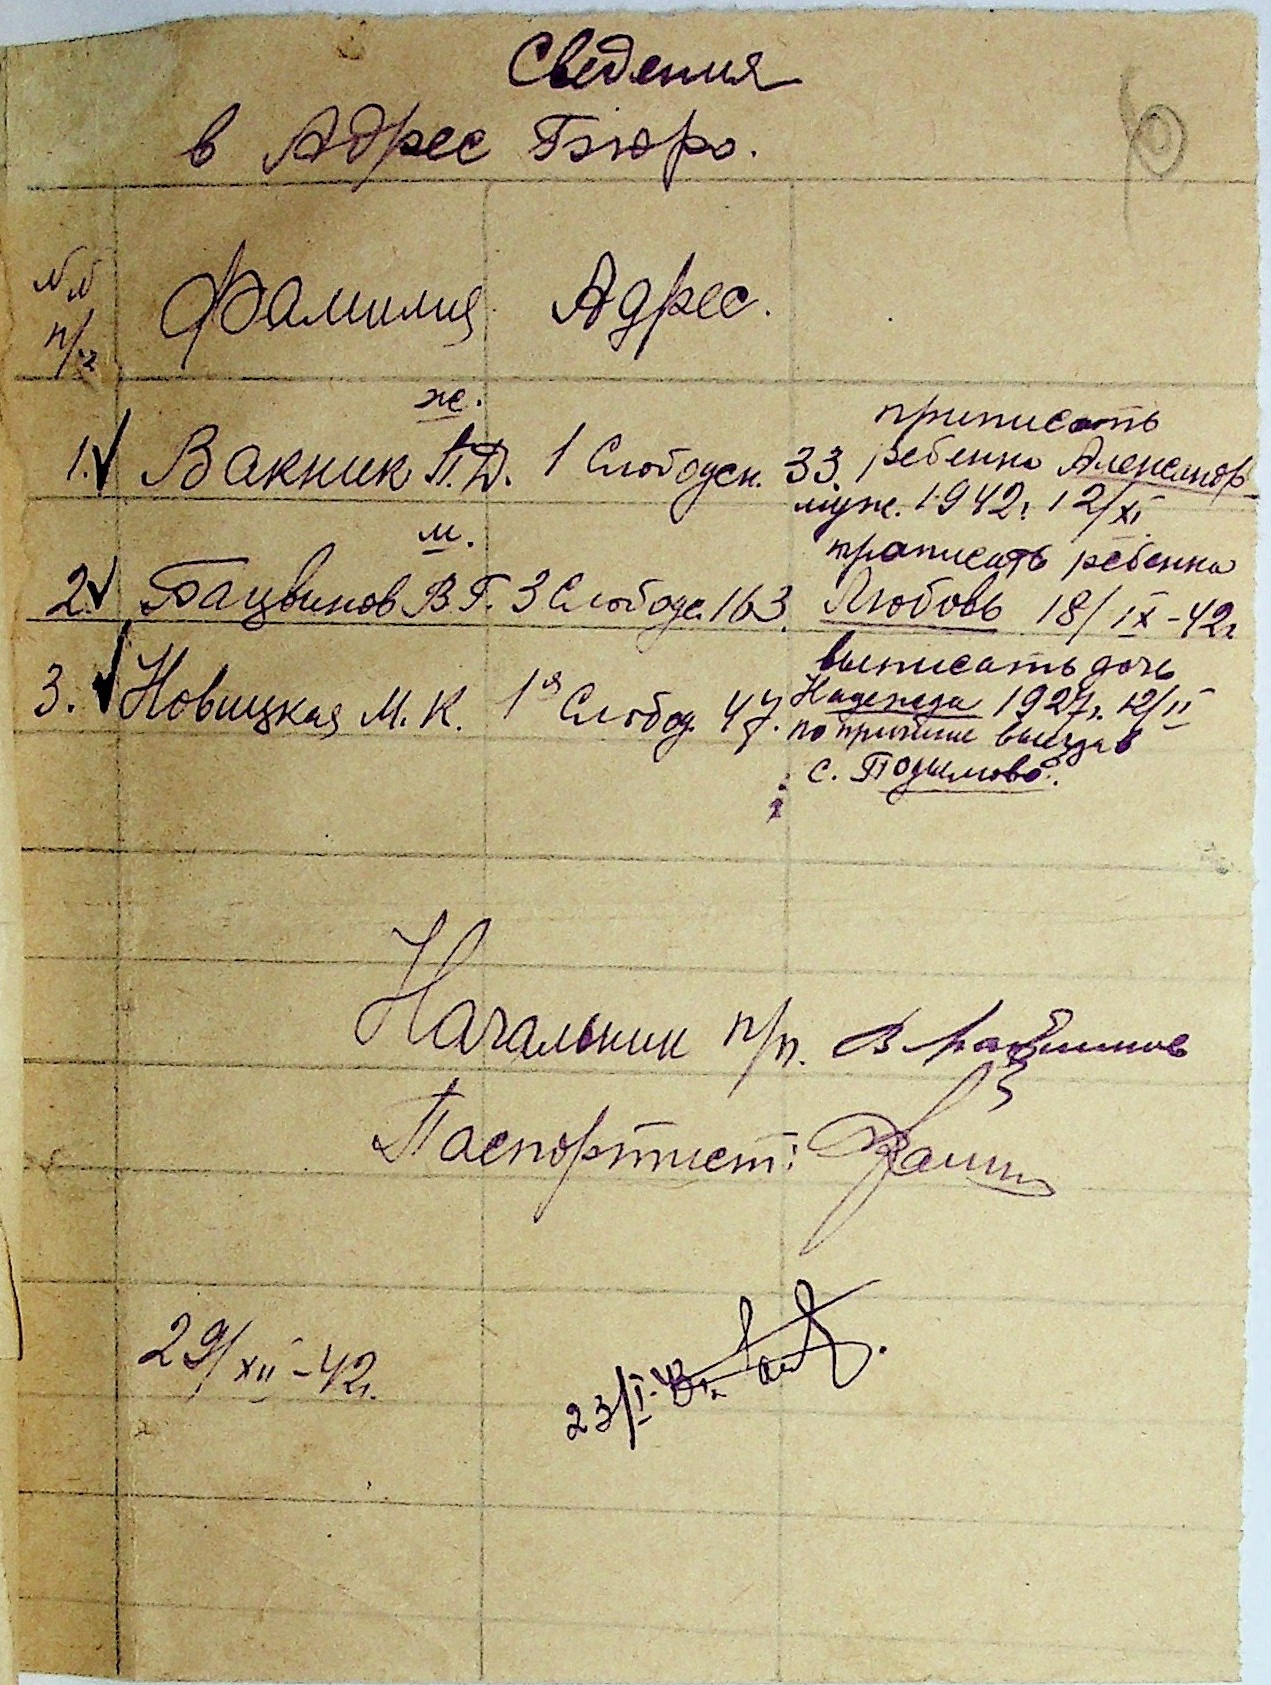 Сведения
в Адрес Бюро.
№№ п/п
Фамилия Адрес.
ж.
1. Вакник П.Д. 1 Слободск. 33. приписать
ребенка Александр
муж. 1942г. 12/XI
м.
2. Бацвинов В.Г. 3 Слободс. 163. прописать ребенка
Любовь 18/IX-42г.
3. Новицкая М.К. 1я Слобод. 47. выписать дочь
Надежда 1927г. 12/II
по причине выезда в
с. Подымово.
Начальник п/п. В
Паспортист:
29/XII-42г.
23/I-43г.